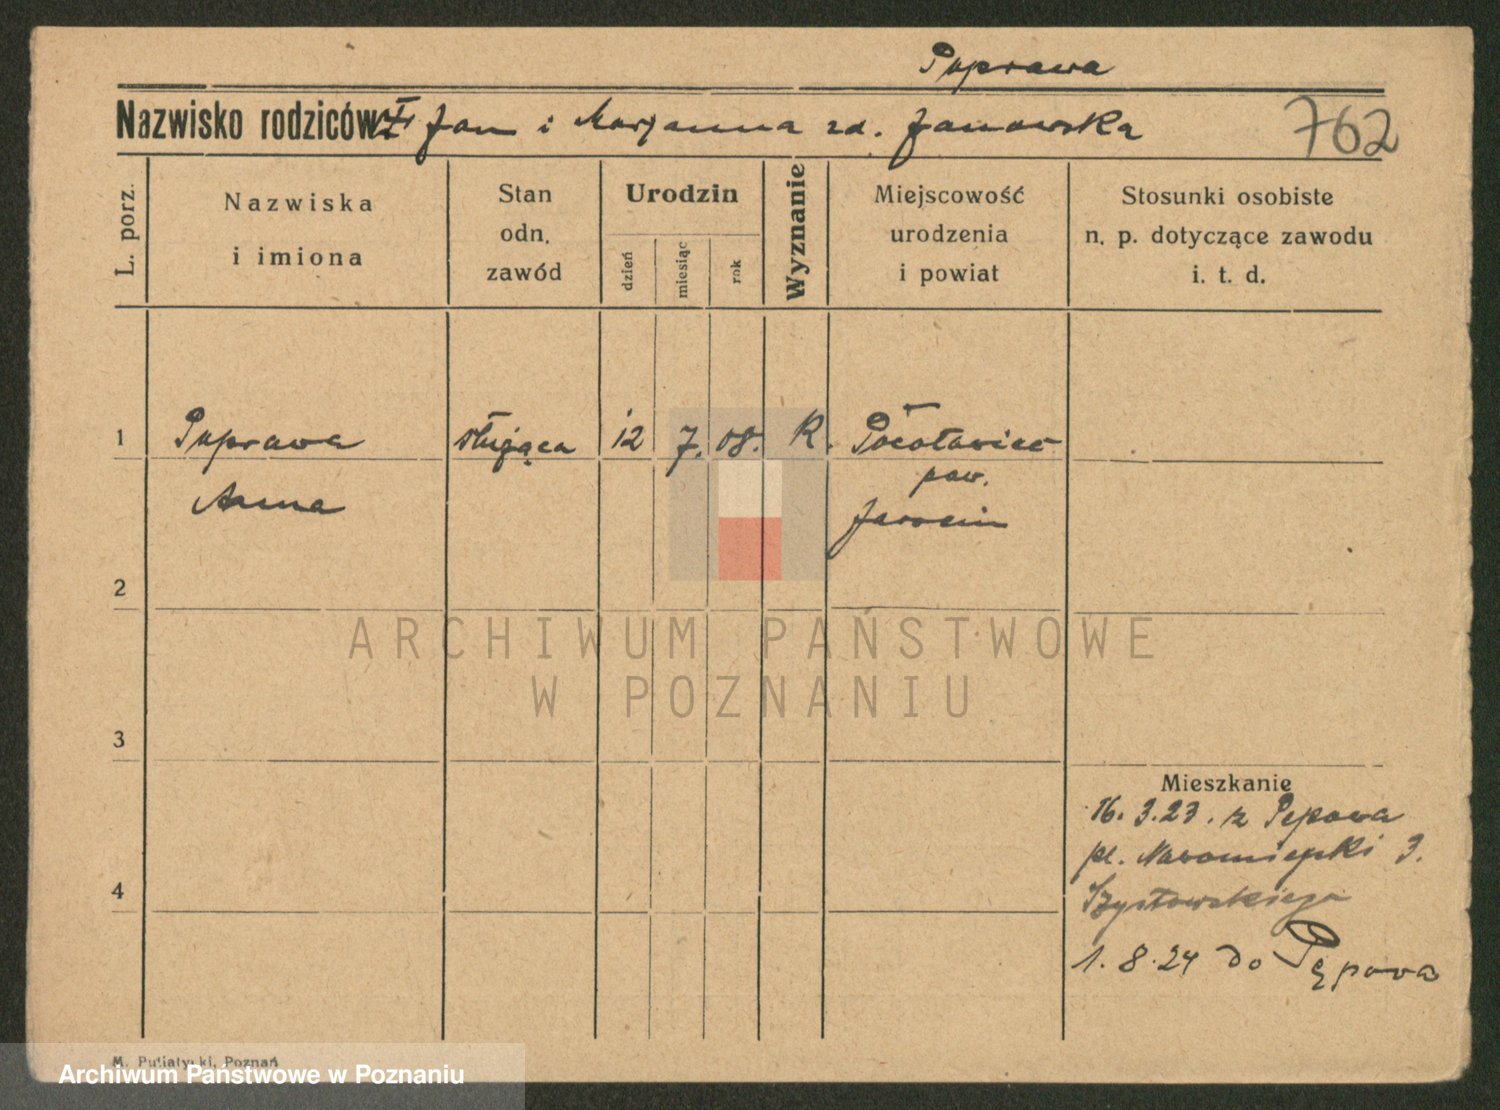 Poprawa
Nazwisko rodziców: Jan i Marjanna zd. Janowska
762
L. porz.
Nazwiska
i imiona
Stan
odn.
zawód
Urodzin
dzień
miesiąc
rok
Wyznanie
Miejscowość
urodzenia
i powiat
Stosunki osobiste
n. p. dotyczące zawodu
i. t. d.
1 Poprawa służąca 12 7. 08. R.
pow.
Anna Jarocin
2
ARCHIWUM PAŃSTWOWE
W POZNANIU
3
Mieszkanie
16. 3.23. z Pępowa
pl. Nowomiejski 3.
4
1. 8.24 do Pępowa
M. Putiatycki, Poznań
Archiwum Państwowe w Poznaniu